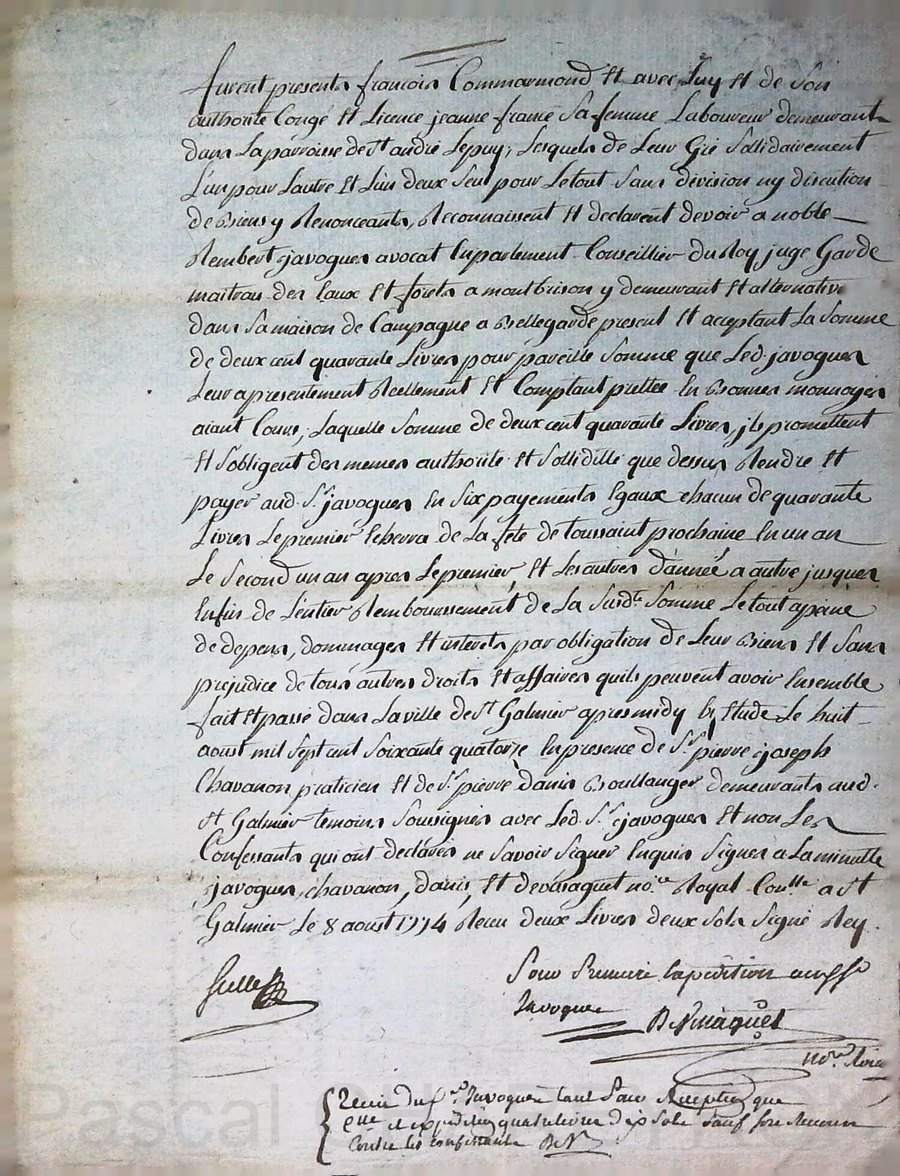 furent presents françois Commarmond et avec Luy et de Son
authorité Congé et Licence jeanne france Sa femme Laboureur demeurant
dans La parroisse de St andré Lepuy, Lesquels de Leur Gré Sollidairement
L'un pour Lautre et Lun deux Seul pour Letout Sans division ny discution
de biens y Renonceants, Reconnaissent et declarent devoir a noble
Rembert javogues avocat En parlement Conseillier du Roy juge Garde
maitrau des Eaux et forets a montbrison y demeurant et alternative
dans Sa maison de Campagne a bellegarde present et acceptant La Somme
de deux cent quarante Livres pour pareille Somme que Led. javogues
Leur a presentement Réellement et Comptant prettée En bonnes monnoyes
aiant Cours, Laquelle Somme de deux cent quarante Livres, jls promettent
et Sobligent des memes authorité et Sollidité que dessus Rendre et
payer aud. Sr. javogues En Six payements Egaux chacun de quarante
Livres Le premier Echerra de La fête de toussaint prochaine En un an
Le Second un an apres Lepremier, et Les autres d'année a autre jusques
Enfin de L'entier Remboursement de La Susdte. Somme Le tout a peine
de depens, dommages et interets par obligation de Leur biens et Sans
prejudice de tous autres droits et affaires quils peuvent avoir Ensemble
fait et passé dans La ville de St Galmier apres midy Etude Le huit
aoust mil Sept cent Soixante quatorze En presence de Sr. pierre joseph
Chavanon praticien et de Sr. pierre danis boullanger demeurants aud.
St Galmier temoins Soussignés avec Led. Sr. javogues et non Les
Confessants qui ont declarés ne Savoir Signer Enquis Signés a La minutte
javogues, chavanon, danis, et devazaguet no.re Royal Con.lle a St
Galmier Le 8 aoust 1774 Recu deux Livres deux Sols Signé Rey.
Pour Premiere Expedition
Javogues
no.re
Recu du Sr. Javogues tant Pour Reception que
Expedition quatre livres dix Sols Sauf Son Recours
Contre les confessants
Pascal